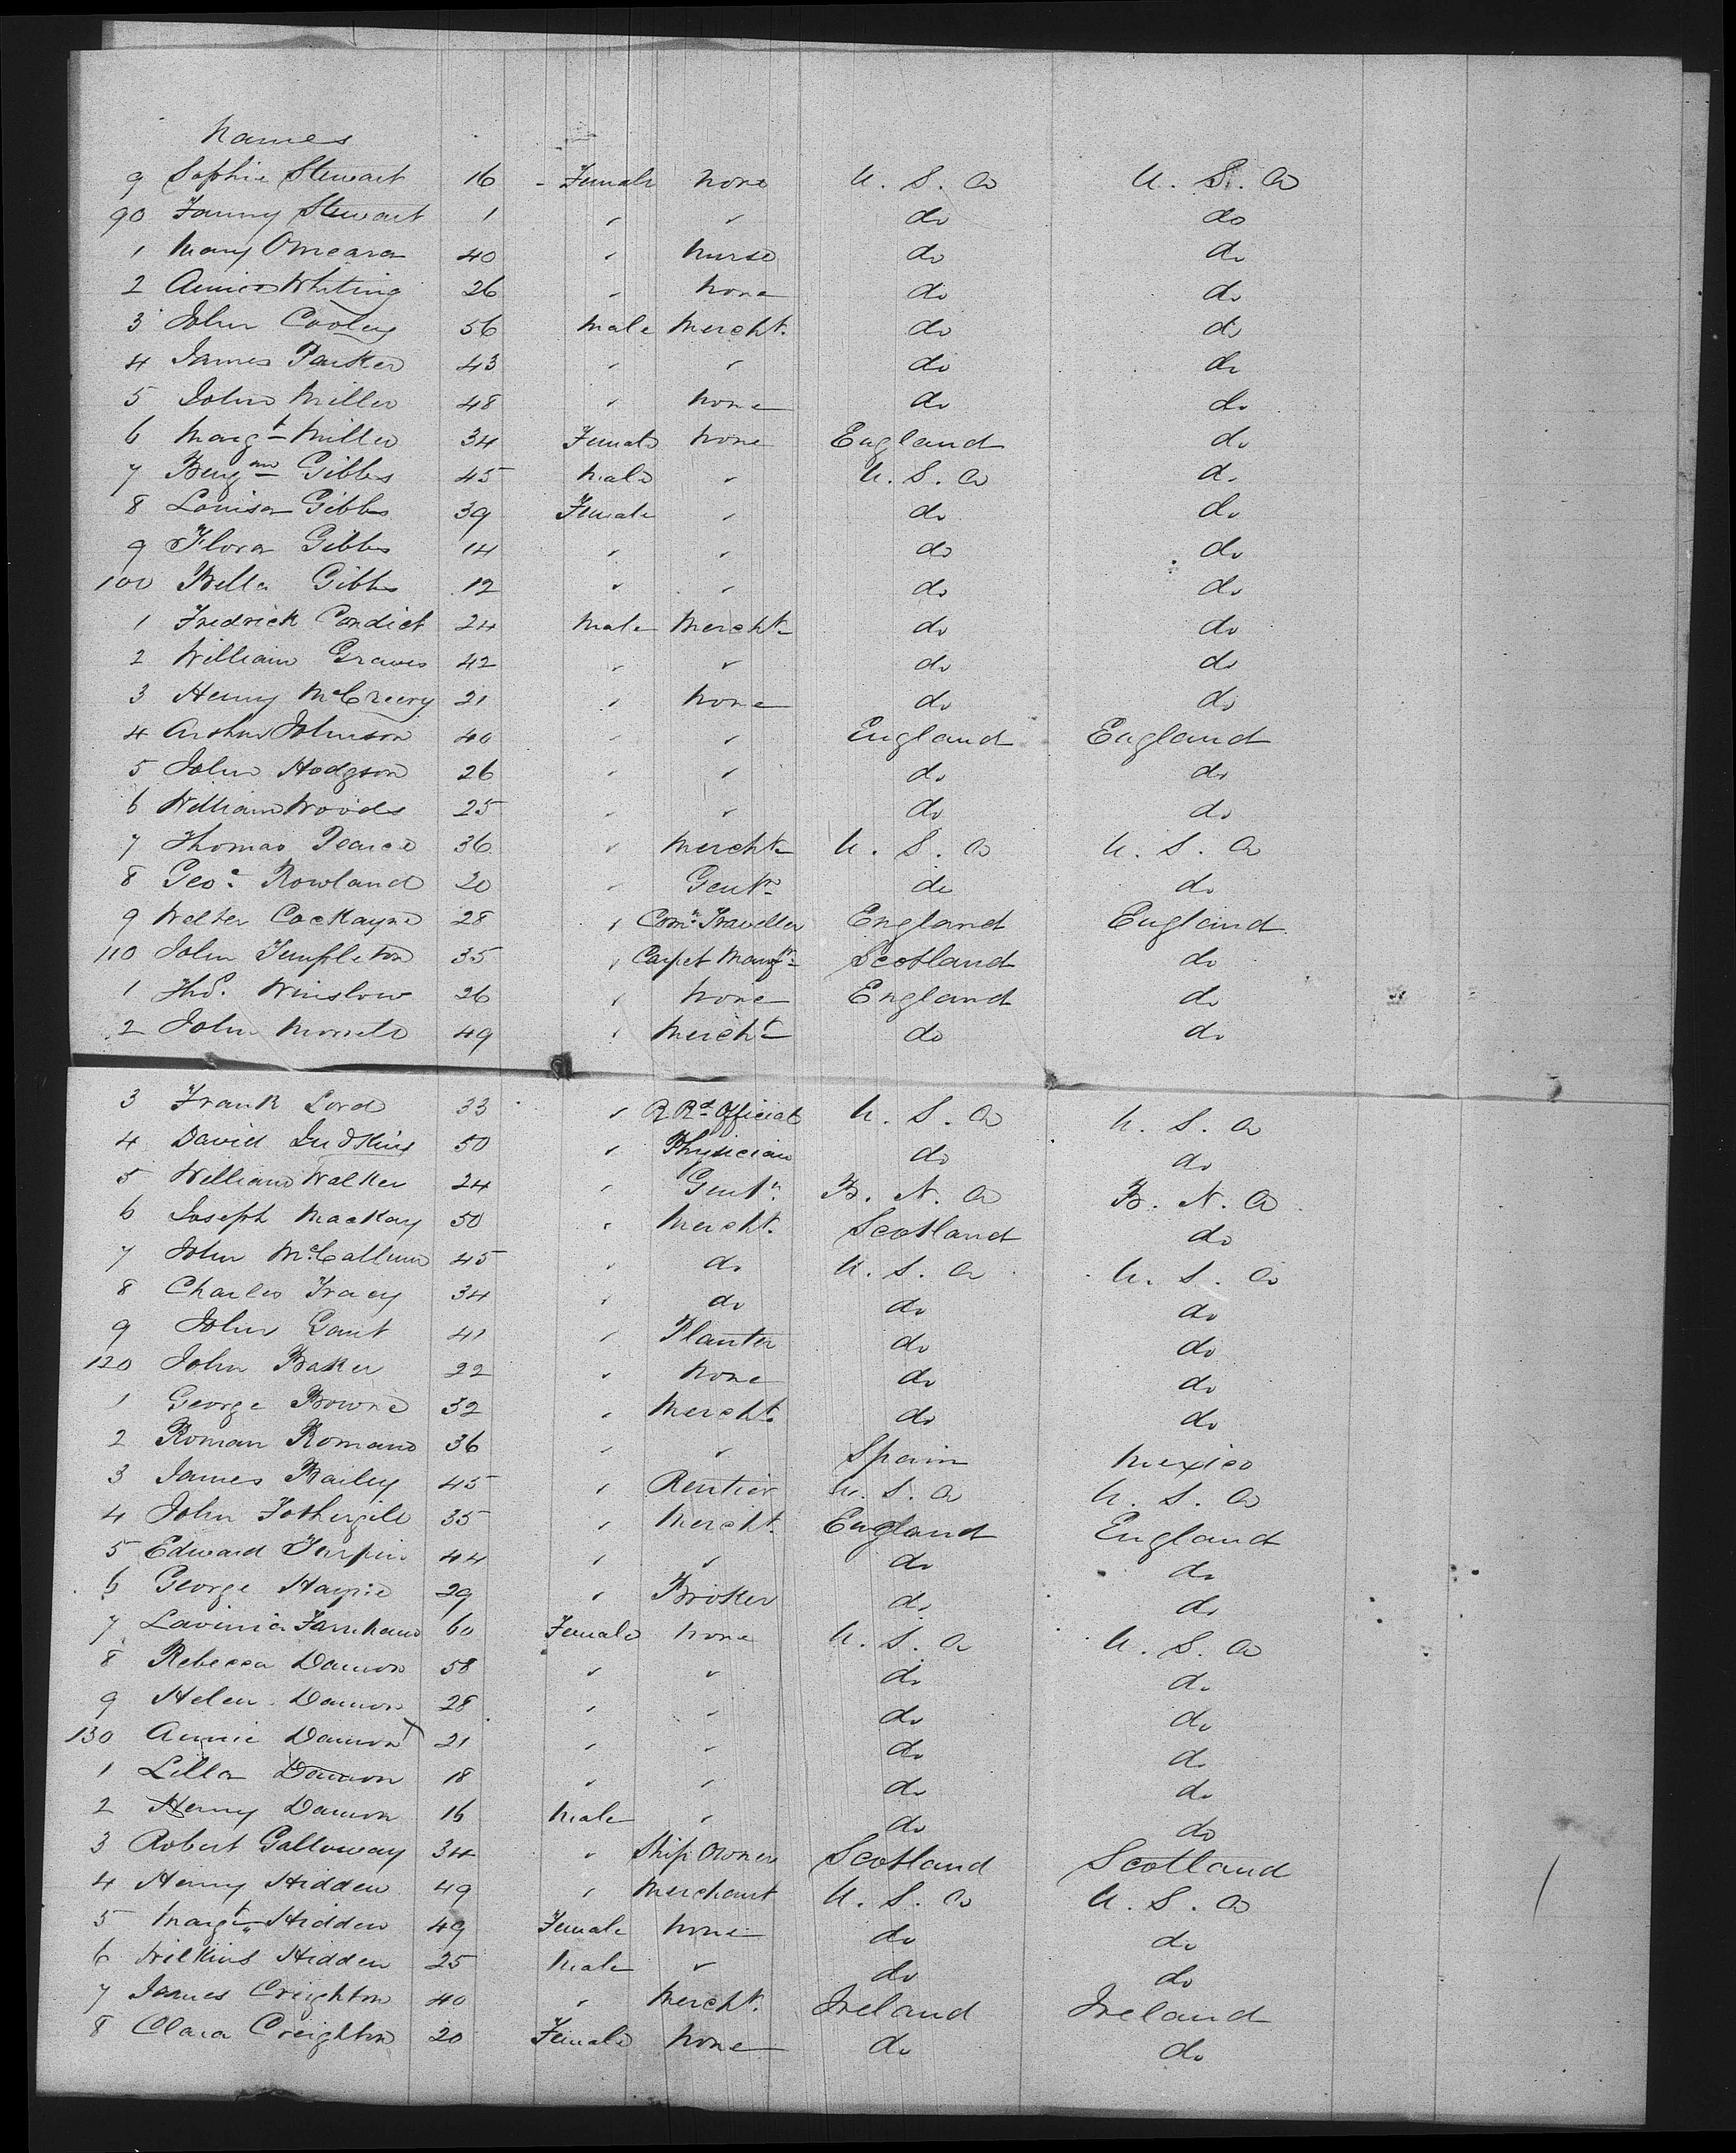 Names
9 Sophie Stewart 16 - Female None U. S. A U. S. A
90 Fanny Stewart 1 " " do do
1 Mary Omeara 40 " Nurse do do
2 Annie Whiting 26 " None do do
3 John Cooley 56 Male Mercht. do do
4 James Parker 43 " " do do
5 John Miller 48 " None do do
6 Margt Miller 34 Female None England do
7 Benjmn Gibbs 45 Male " U. S. A do
8 Louisa Gibbs 39 Female " do do
9 Flora Gibbs 14 " " do do
100 Bella Gibbs 12 " " do do
1 Fredrick Condict 24 Male Mercht do do
2 William Graves 42 " " do do
3 Henry McCreery 21 " None do do
4 Arthur Johnson 40 " " England England
5 John Hodgson 26 " " do do
6 William Woods 25 " " do do
7 Thomas Pearce 36 " Mercht U. S. A U. S. A
8 Geoe Rowland 20 " Gentn do do
9 Walter Cockayne 28 " Comn. Traveller England England
110 John Templeton 35 " Carpet Manfr Scotland do
1 Thos. Winslow 26 " None England do
2 John 49 " Mercht do do
3 Frank Lord 33 " R Rd Official U. S. A U. S. A
4 David Judkins 50 " Physician do do
5 William Walker 24 " Gentn B. N. A B. N. A
6 Joseph Mackay 50 " Mercht. Scotland do
7 John McCallum 45 " do U. S. A U. S. A
8 Charles Tracy 34 " do do do
9 John Gant 41 " Planter do do
120 John Baker 22 " None do do
1 George Browne 32 " Mercht. do do
2 Roman Romano 36 " " Spain Mexico
3 James Bailey 45 " Rentier U. S. A U. S. A
4 John Fothergill 35 " Mercht. England England
5 Edward Turpin 44 " " do do
6 George 29 " Broker do do
7 Lavinia Farnham 60 Female None U. S. A U. S. A
8 Rebecca Damon 58 " " do do
9 Helen Damon 28 " " do do
130 Annie Damon 21 " " do do
1 Lilla Damon 18 " " do do
2 Henry Damon 16 Male " do do
3 Robert Galloway 34 " Ship Owner Scotland Scotland
4 Henry Hidden 49 " Merchant U. S. A U. S. A
5 Margt Hidden 49 Female None do do
6 Wilkins Hidden 25 Male " do do
7 James Creighton 40 " Mercht. Ireland Ireland
8 Clara Creighton 20 Female None do do